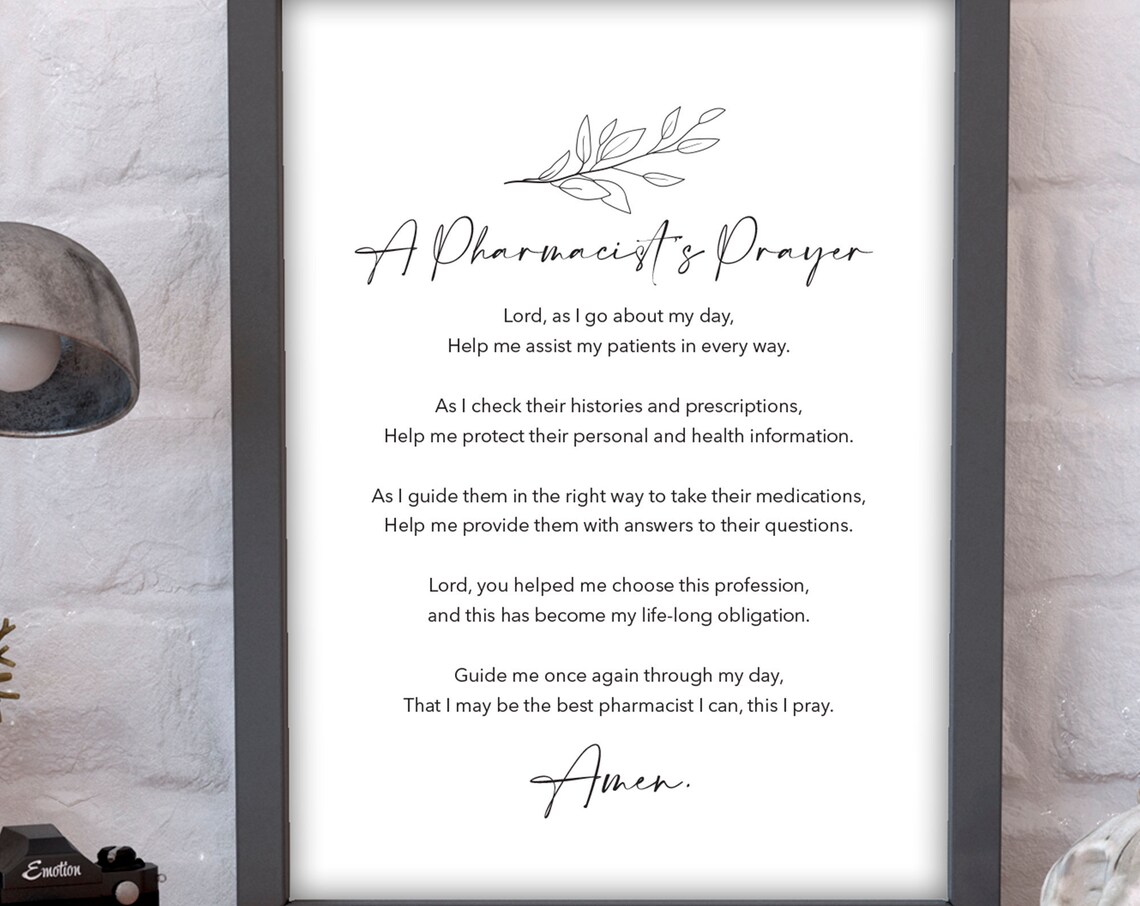 A Pharmacist's Prayer
Lord, as I go about my day,
Help me assist my patients in every way.
As I check their histories and prescriptions,
Help me protect their personal and health information.
As I guide them in the right way to take their medications,
Help me provide them with answers to their questions.
Lord, you helped me choose this profession,
and this has become my life-long obligation.
Guide me once again through my day,
That I may be the best pharmacist I can, this I pray.
Amen.
Emotion